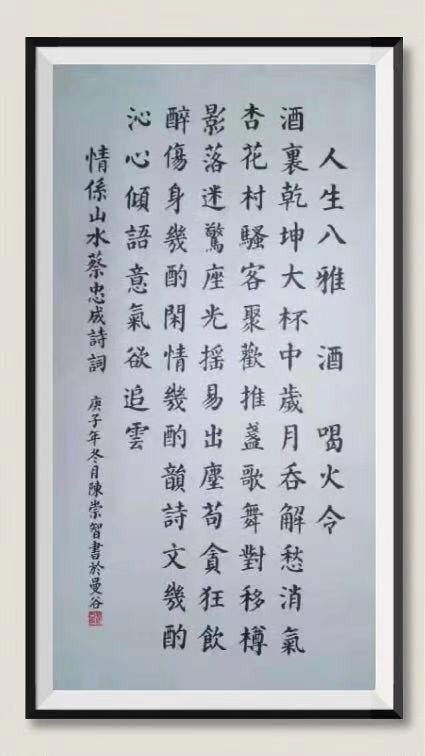 人生八雅 酒 喝火令
酒裏乾坤大杯中歲月吞解愁消氣
杏花村騷客聚歡推盞歌舞對移樽
影落迷驚座光摇易出塵苟貪狂飲
醉傷身幾酌閑情幾酌韻詩文幾酌
沁心傾語意氣欲追雲
情係山水蔡忠成詩詞 庚子年冬月陳崇智書於曼谷